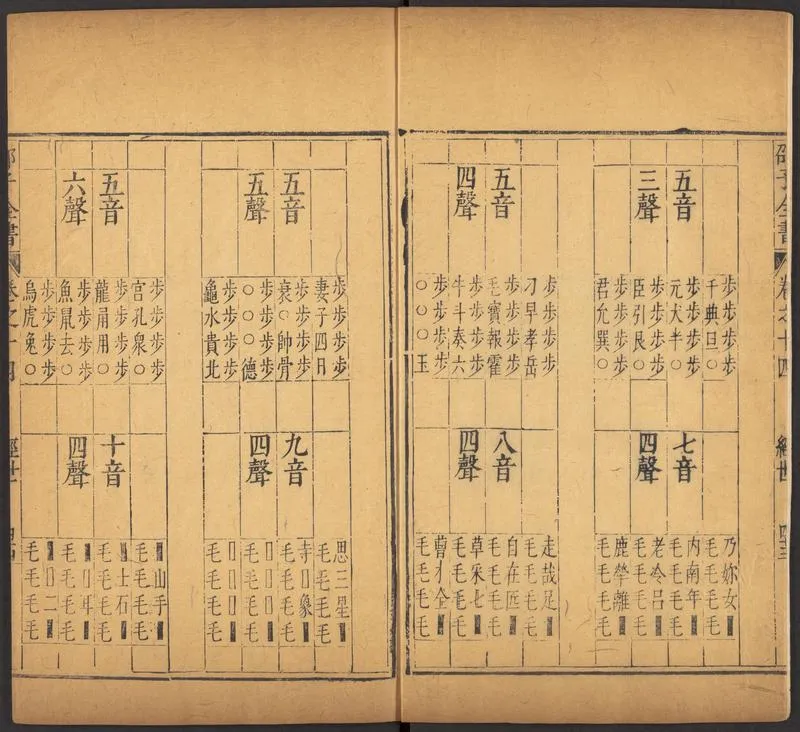 邵子全書 卷之十四 經世 四三
五音
三聲
步步步步
千典旦○
步步步步
元犬半○
步步步步
臣引艮○
步步步步
君允巽○
七音
四聲
乃妳女■
毛毛毛毛
內南年■
毛毛毛毛
老冷呂■
毛毛毛毛
鹿犖離■
毛毛毛毛
五音
四聲
步步步步
刁早孝岳
步步步步
毛寶報霍
步步步步
牛斗奏六
步步步步
○○○玉
八音
四聲
走哉足■
毛毛毛毛
自在匠■
毛毛毛毛
草采七■
毛毛毛毛
曹才全■
毛毛毛毛
五音
五聲
步步步步
妻子四日
步步步步
衰○帥骨
步步步步
○○○德
步步步步
龜水貴北
九音
四聲
思三星■
毛毛毛毛
寺□象■
毛毛毛毛
□□□■
毛毛毛毛
□□□■
毛毛毛毛
五音
六聲
步步步步
宮孔衆○
步步步步
龍甬用○
步步步步
魚鼠去○
步步步步
烏虎兔○
十音
四聲
■山手■
毛毛毛毛
■士石■
毛毛毛毛
■□耳■
毛毛毛毛
■□二■
毛毛毛毛
邵子全書 卷之十四 經世 四四